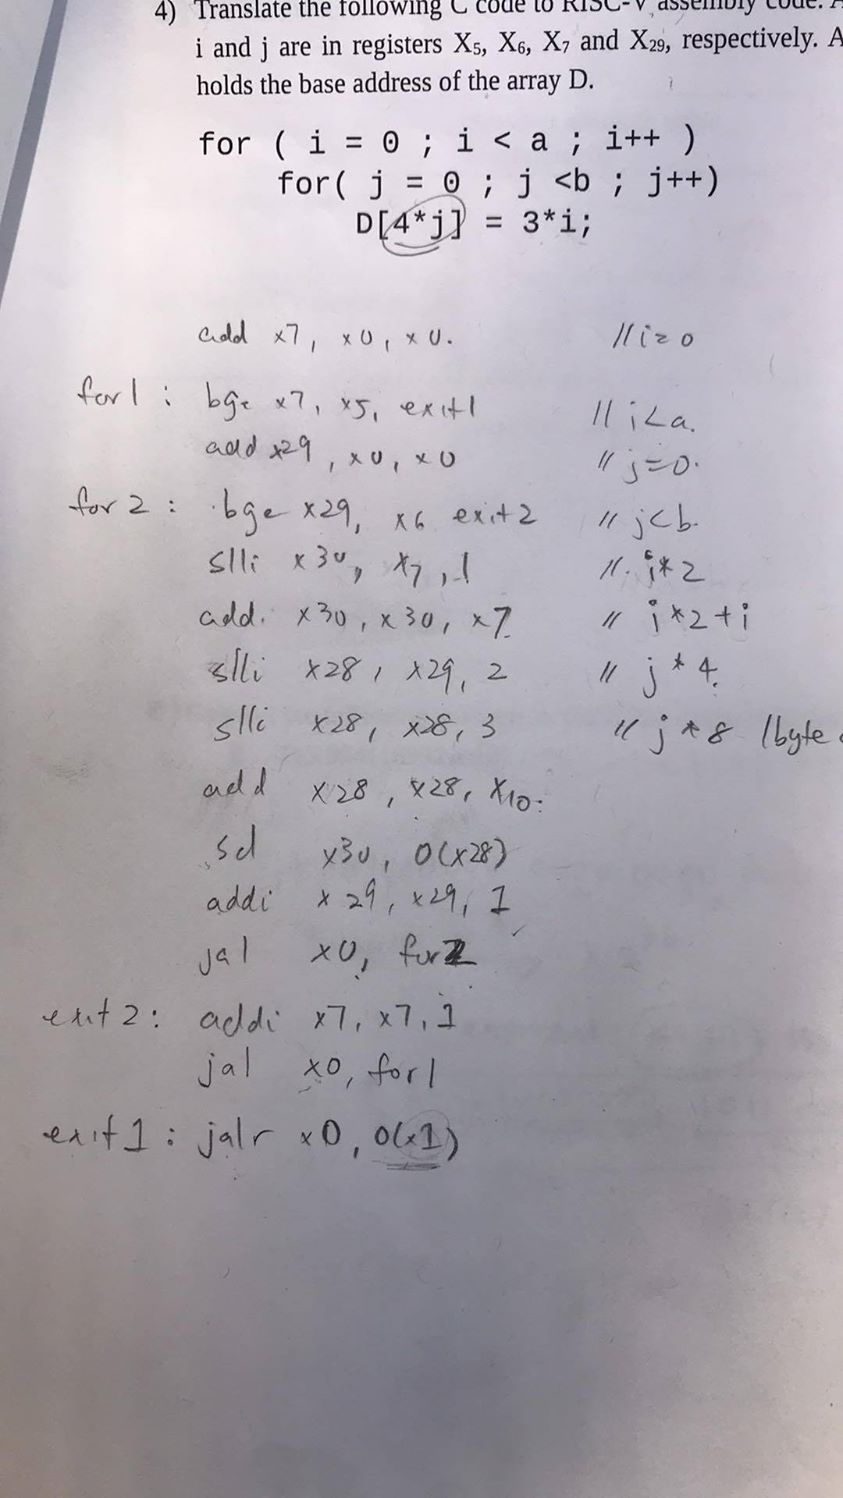 4) Translate the following C code to RISC-V assembly code. A
i and j are in registers X5, X6, X7 and X29, respectively. A
holds the base address of the array D.
for ( i = 0 ; i < a ; i++ )
for( j = 0 ; j <b ; j++)
D[4*j] = 3*i;
add x7, x0, x0. //i=0
for1 : bge x7, x5, exit1 // i<a.
add x29, x0, x0 // j=0.
for 2 : bge x29, x6 exit2 // j<b.
slli x30, x7, 1 // i*2
add. x30, x30, x7 // i*2+i
slli x28, x29, 2 // j*4.
slli x28, x28, 3 // j*8 (byte
add x28, x28, x10.
sd x30, 0(x28)
addi x29, x29, 1
jal x0, for2
exit2: addi x7, x7, 1
jal x0, for1
exit1 : jalr x0, 0(x1)